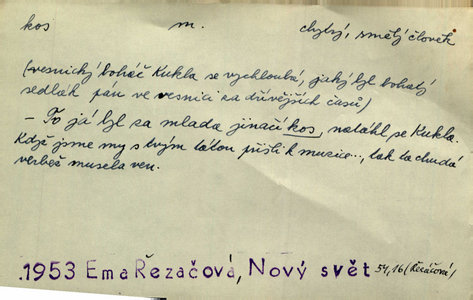 kos m. chytrý, smělý člověk
(vesnický boháč Kukla se vychloubá, jaký byl bohatý
sedlák pán ve vesnici za dřívějších časů)
- To já byl za mlada jinačí kos, natáhl se Kukla.
Když jsme my s tvým tátou přišli k muzice.., tak ta chudá
verbež musela ven.
.1953 Ema Řezačová, Nový svět 54,16 (Řezáčová)